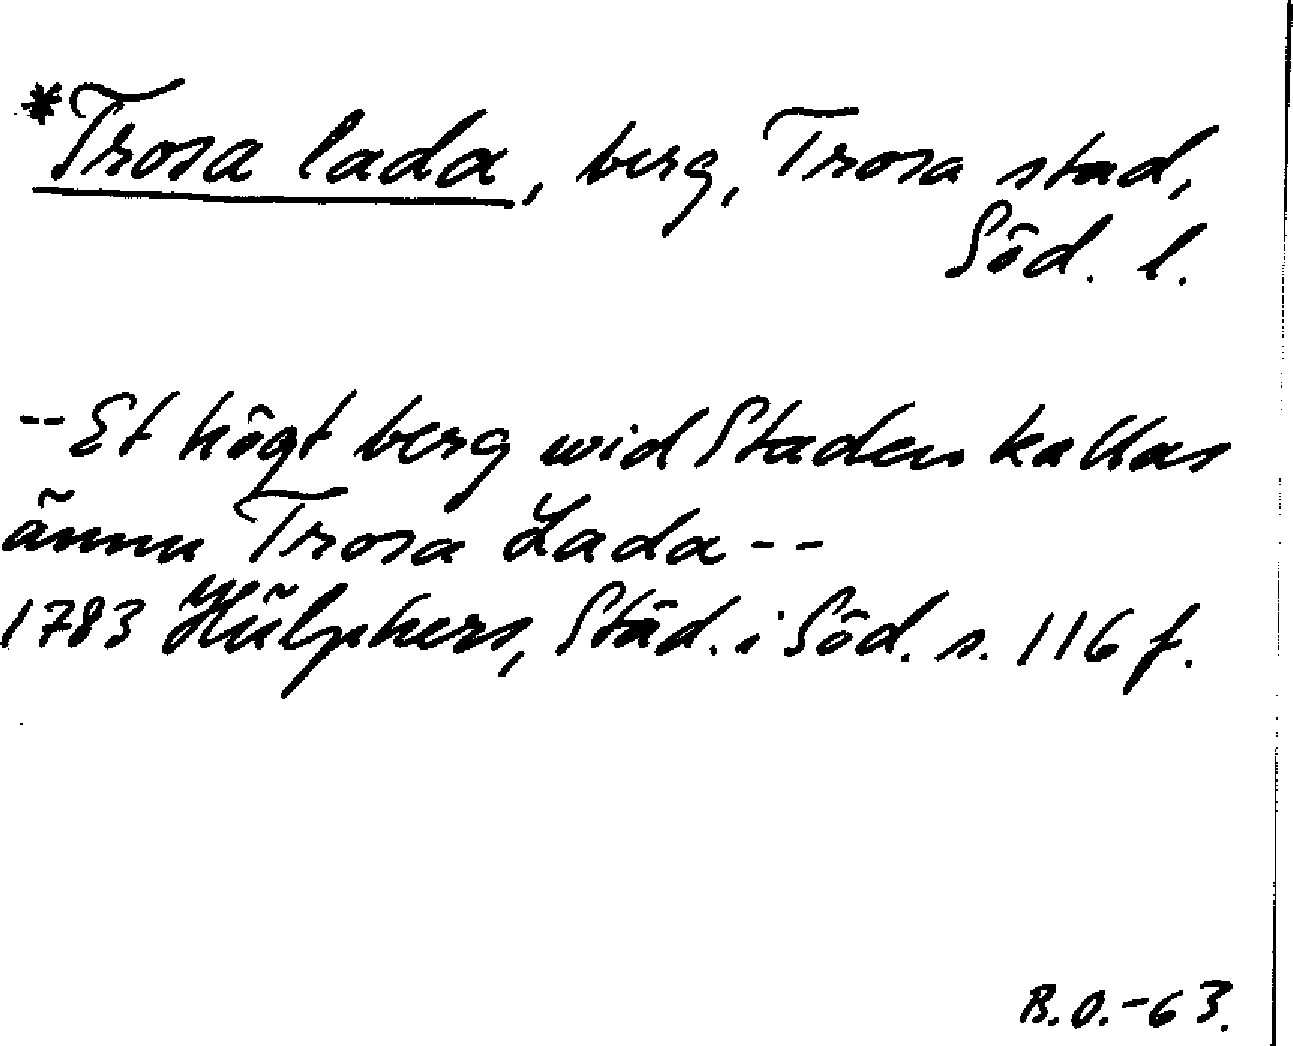 *Trosa lada, berg, Trosa stad,
Söd. l.
-- Et högt berg wid Staden kallas
ännu Trosa Lada --
1783 Hülphers, Städ. i Söd. s. 116 f.
B.O.-63.